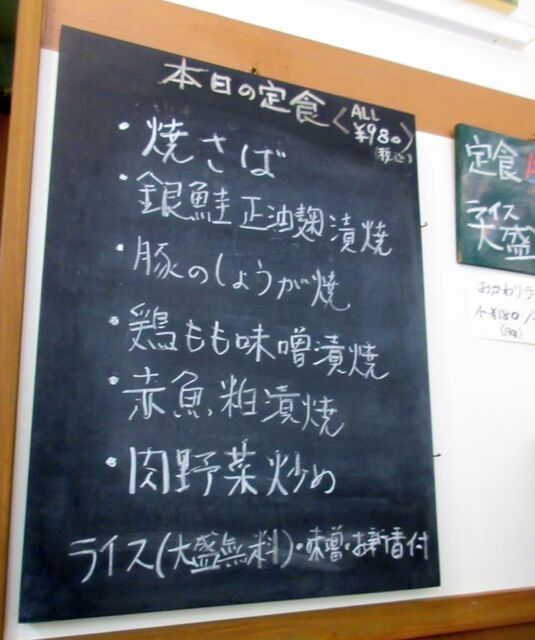 本日の定食〈ALL ¥980(税込)〉
・焼さば
・銀鮭正油麹漬焼
・豚のしょうが焼
・鶏もも味噌漬焼
・赤魚粕漬焼
・肉野菜炒め
ライス(大盛無料)・味噌・お新香付
定食
ライス
大盛
おかわりラ
小¥180/